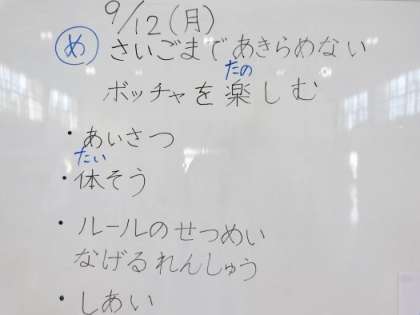 9/12(月)
め さいごまであきらめない
たの
ボッチャを楽しむ
・あいさつ
たい
・体そう
・ルールのせつめい
なげるれんしゅう
・しあい